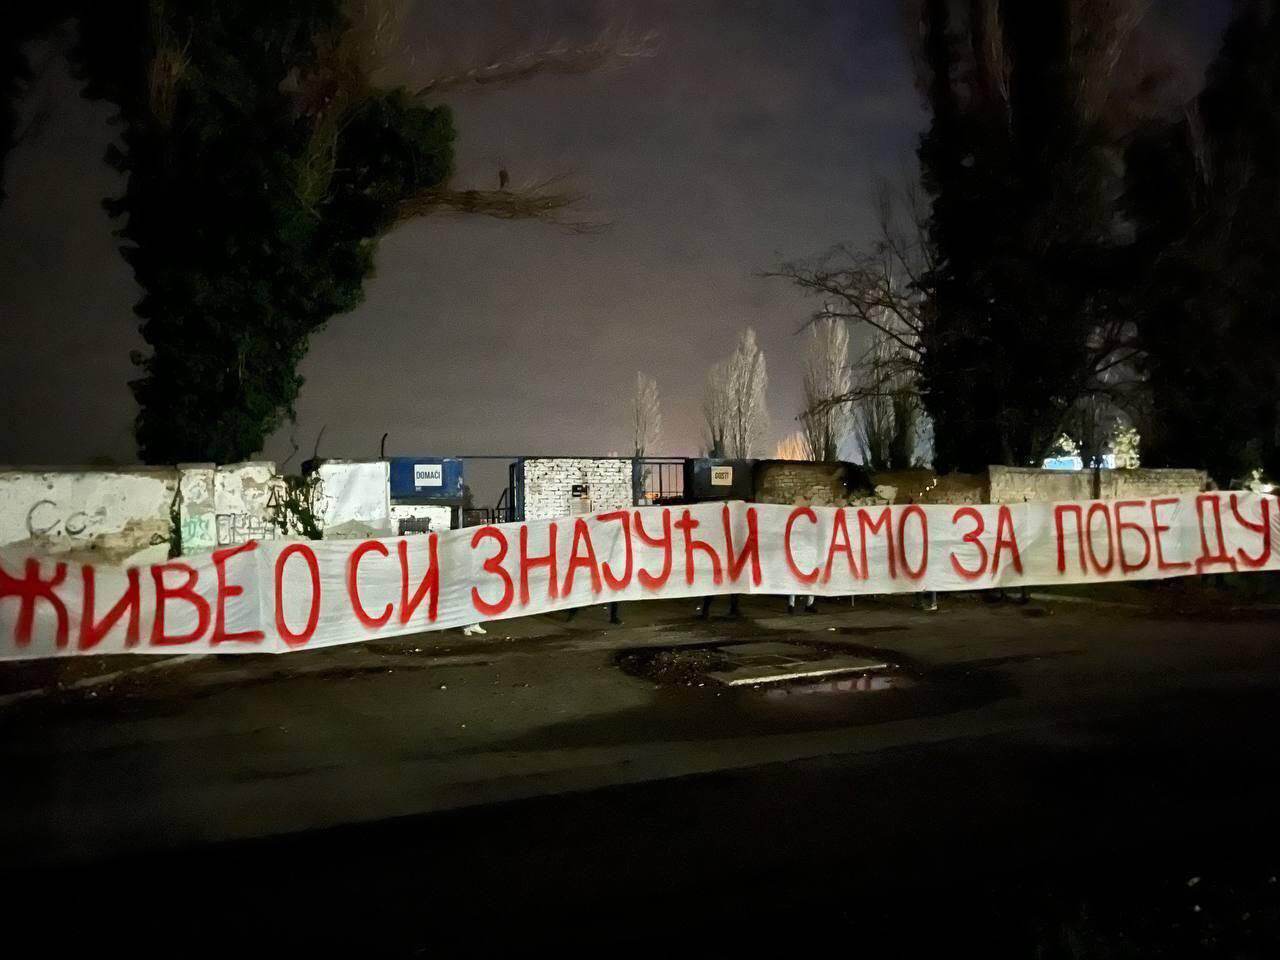 DOMAĆI
GOSTI
ЖИВЕО СИ ЗНАЈУЋИ САМО ЗА ПОБЕДУ